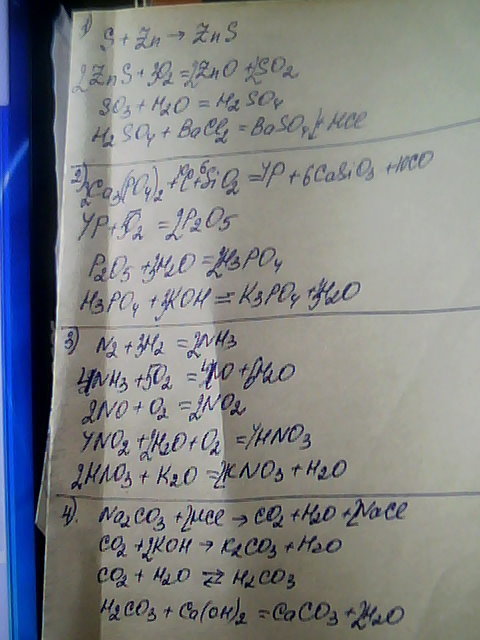 1) S + Zn → ZnS
2ZnS + 3O2 = 2ZnO + 2SO2
SO3 + H2O = H2SO4
H2SO4 + BaCl2 = BaSO4 + HCl
2) 2Ca3(PO4)2 + 10C + 6SiO2 = 4P + 6CaSiO3 + 10CO
4P + 5O2 = 2P2O5
P2O5 + 3H2O = 2H3PO4
H3PO4 + 3KOH = K3PO4 + 3H2O
3) N2 + 3H2 = 2NH3
4NH3 + 5O2 = 4NO + 6H2O
2NO + O2 = 2NO2
4NO2 + 2H2O + O2 = 4HNO3
2HNO3 + K2O = 2KNO3 + H2O
4) Na2CO3 + 2HCl → CO2 + H2O + 2NaCl
CO2 + 2KOH → K2CO3 + H2O
CO2 + H2O ⇄ H2CO3
H2CO3 + Ca(OH)2 = CaCO3 + 2H2O